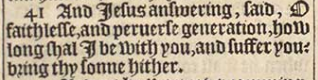 41 And Jesus answering, said, O
faithlesse, and peruerse generation, how
long shal I be with you, and suffer you?
bring thy sonne hither.